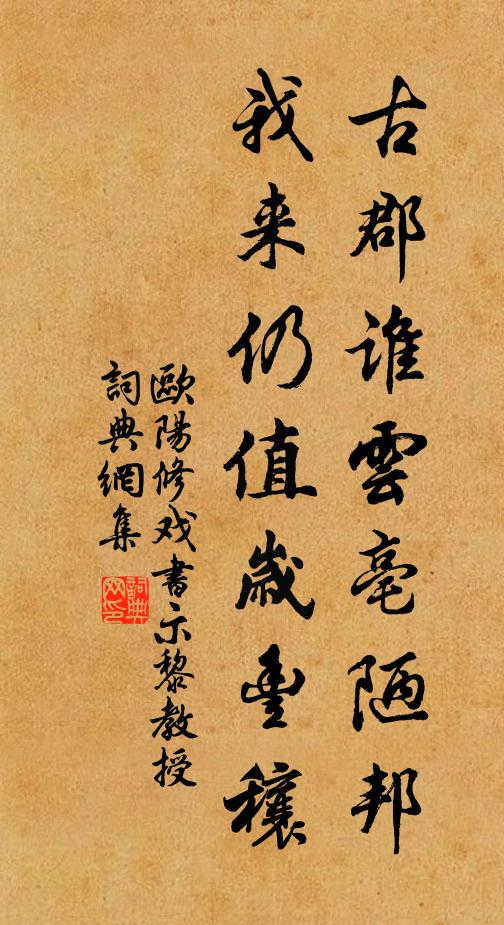 古郡誰雲亳陋邦
我来仍值歲豊穰
歐陽修戏書示黎教授
詞典網集
詞典
网印